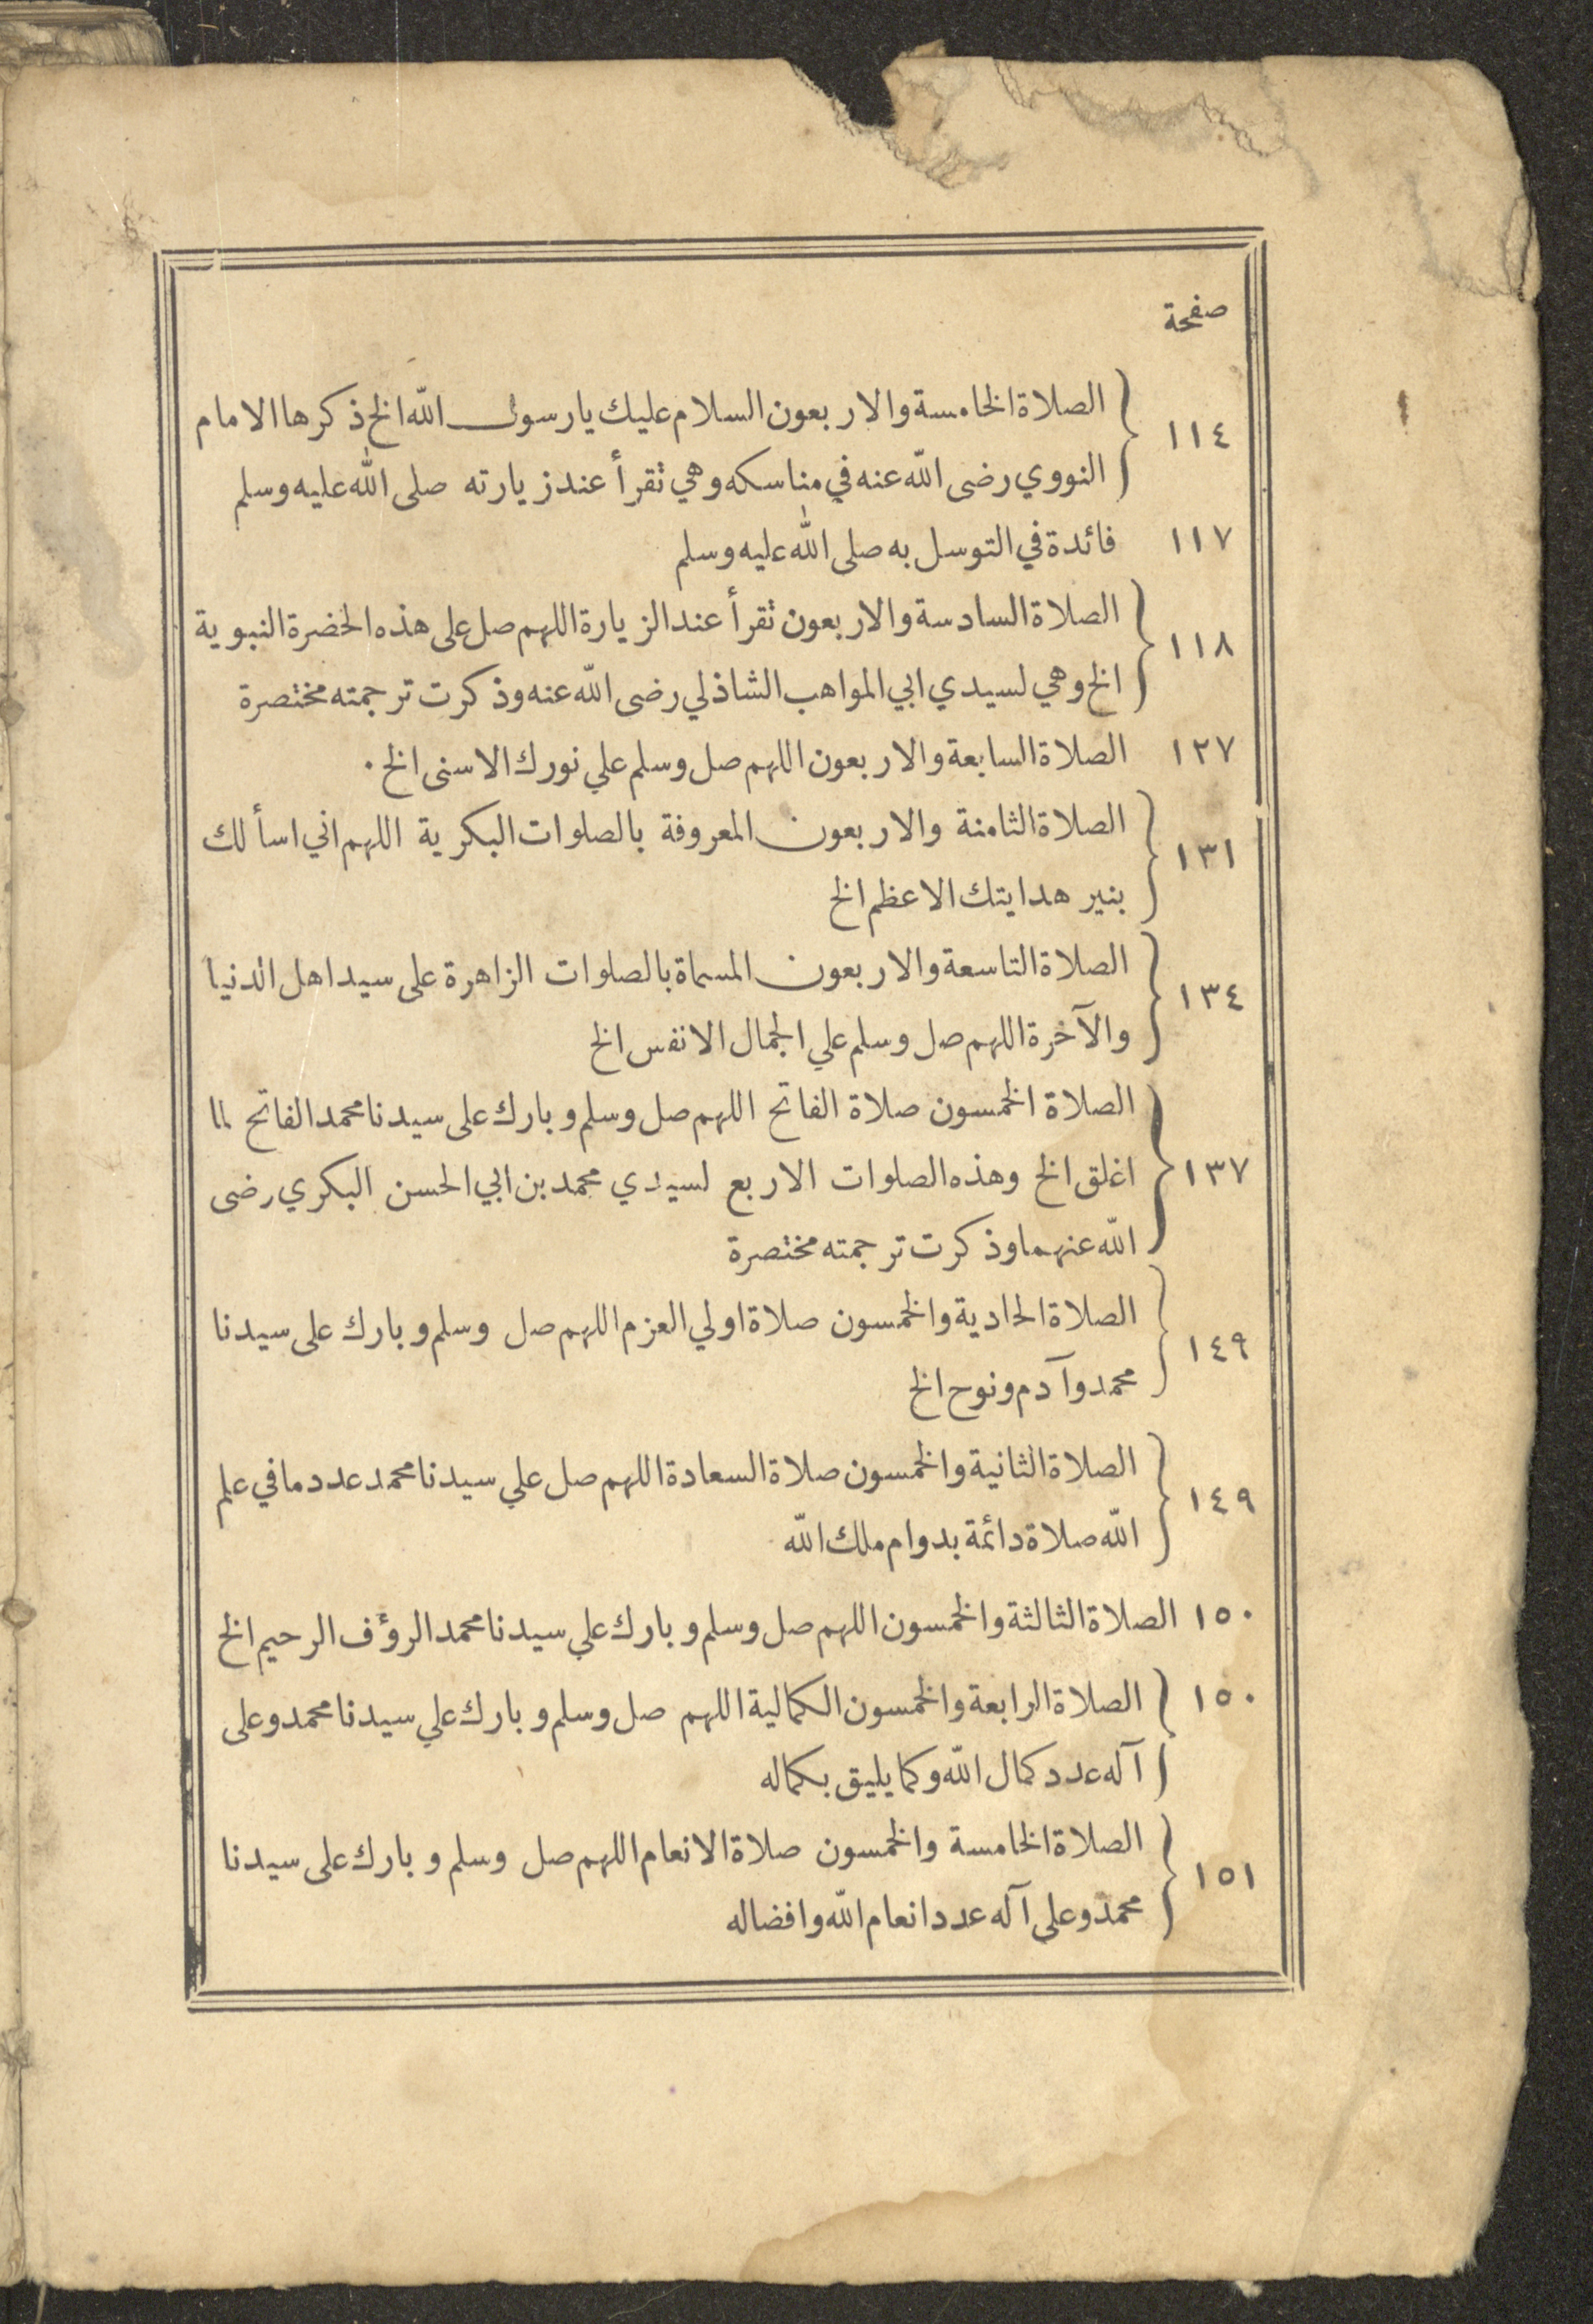 صفحة
الصلاة الخامسة والاربعون السلام عليك يارسول الله الخ ذكرها الامام
١١٤
النووي رضى الله عنه في مناسكه وهي تقرأ عند زيارته صلى الله عليه وسلم
١١٧ فائدة في التوسل به صلى الله عليه وسلم
الصلاة السادسة والاربعون تقرأ عند الزيارة اللهم صل على هذه الحضرة النبوية
١١٨
الخ وهي لسيدي ابي المواهب الشاذلي رضى الله عنه وذكرت ترجمته مختصرة
١٢٧ الصلاة السابعة والاربعون اللهم صل وسلم علي نورك الاسنى الخ ٠
الصلاة الثامنة والاربعون المعروفة بالصلوات البكرية اللهم اني اسألك
١٣١
بنير هدايتك الاعظم الخ
الصلاة التاسعة والاربعون المسماة بالصلوات الزاهرة على سيد اهل الدنيا
١٣٤
والآخرة اللهم صل وسلم علي الجمال الانفس الخ
الصلاة الخمسون صلاة الفاتح اللهم صل وسلم وبارك على سيدنا محمد الفاتح لما
١٣٧ اغلق الخ وهذه الصلوات الاربع لسيدي محمد بن ابي الحسن البكري رضى
الله عنهما وذكرت ترجمته مختصرة
الصلاة الحادية والخمسون صلاة اولي العزم اللهم صل وسلم وبارك على سيدنا
١٤٩
محمد وآدم ونوح الخ
الصلاة الثانية والخمسون صلاة السعادة اللهم صل علي سيدنا محمد عدد ما في علم
١٤٩
الله صلاة دائمة بدوام ملك الله
١٥٠ الصلاة الثالثة والخمسون اللهم صل وسلم وبارك علي سيدنا محمد الرؤف الرحيم الخ
١٥٠ الصلاة الرابعة والخمسون الكمالية اللهم صل وسلم وبارك علي سيدنا محمد وعلى
آله عدد كمال الله وكما يليق بكماله
الصلاة الخامسة والخمسون صلاة الانعام اللهم صل وسلم وبارك على سيدنا
١٥١
محمد وعلى آله عدد انعام الله وافضاله